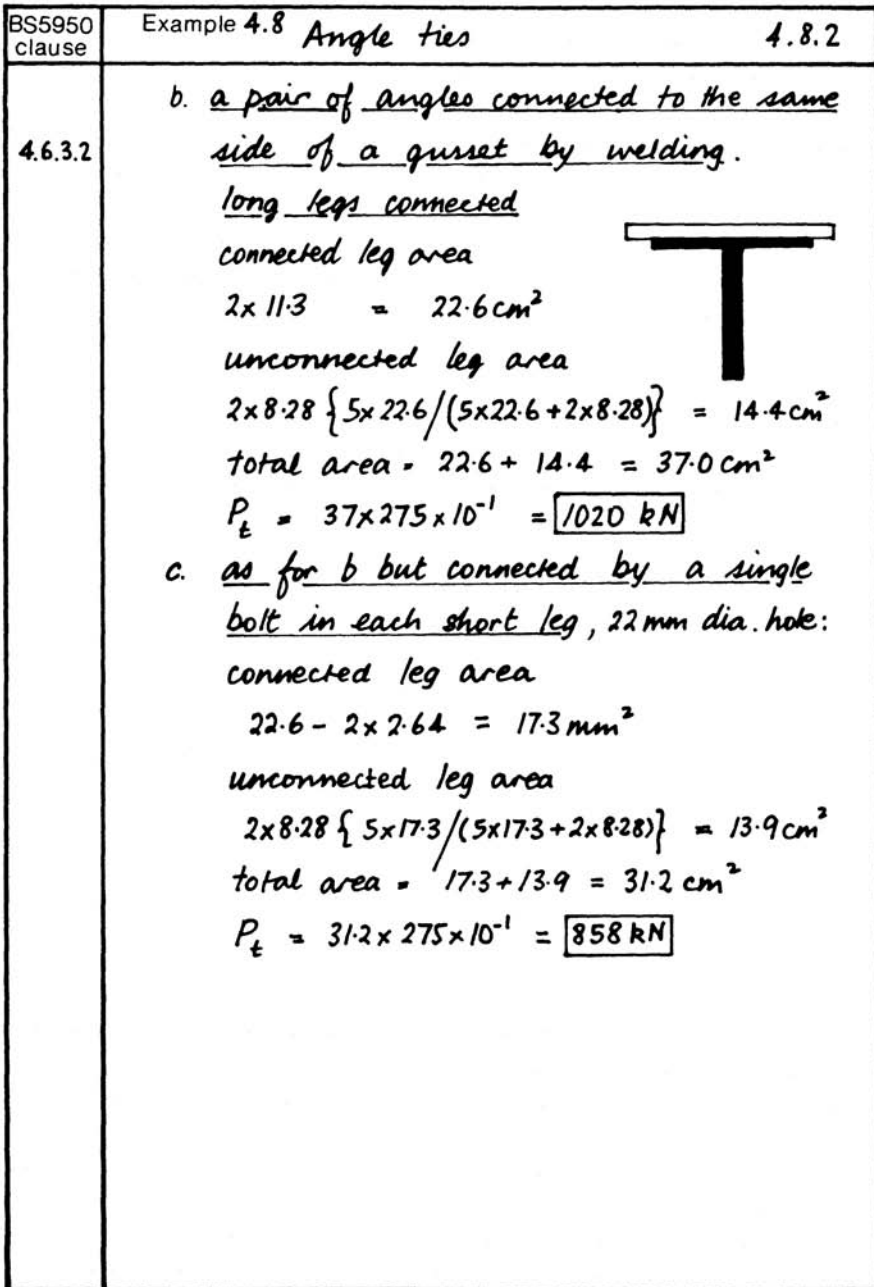 BS5950 clause
Example 4.8 Angle ties 4.8.2
b. a pair of angles connected to the same
4.6.3.2 side of a gusset by welding.
long legs connected
connected leg area
2x 11.3 = 22.6 cm²
unconnected leg area
2x8.28 {5x 22.6/(5x22.6 + 2x8.28)} = 14.4 cm²
total area = 22.6 + 14.4 = 37.0 cm²
Pt = 37x275x10⁻¹ = 1020 kN
c. as for b but connected by a single
bolt in each short leg, 22 mm dia. hole:
connected leg area
22.6 - 2x 2.64 = 17.3 mm²
unconnected leg area
2x8.28 { 5x17.3/(5x17.3+2x8.28)} = 13.9 cm²
total area = 17.3+13.9 = 31.2 cm²
Pt = 31.2x 275x10⁻¹ = 858 kN